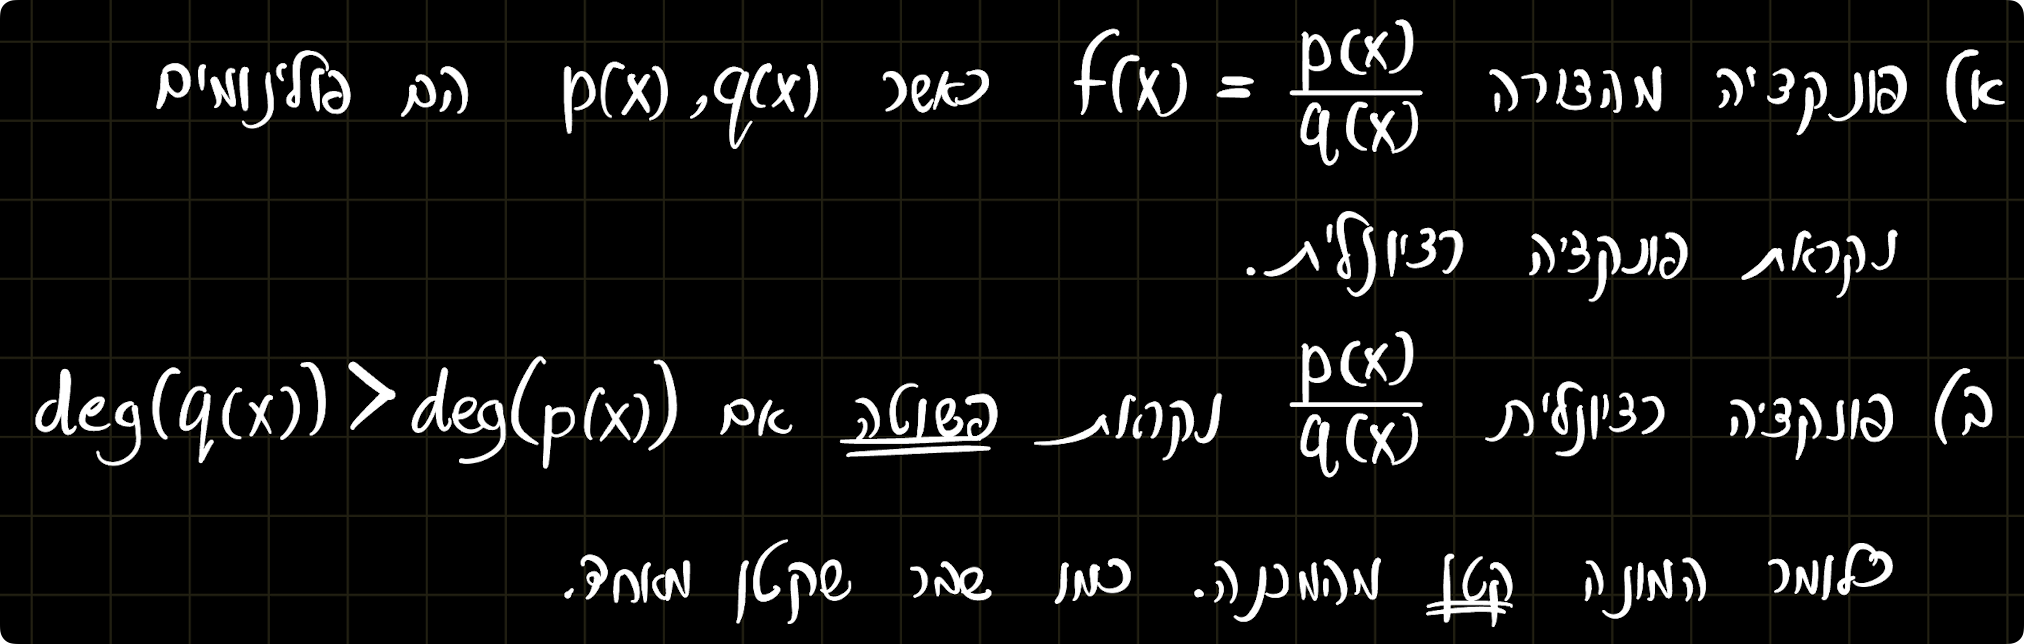 א) פונקציה מהצורה f(x) = p(x)/q(x) כאשר p(x), q(x) הם פולינומים
נקראת פונקציה רציונלית.
ב) פונקציה רציונלית p(x)/q(x) נקראת פשוטה אם deg(q(x)) > deg(p(x))
כלומר המונה קטן מהמכנה. כמו שבר שקטן מאחד.